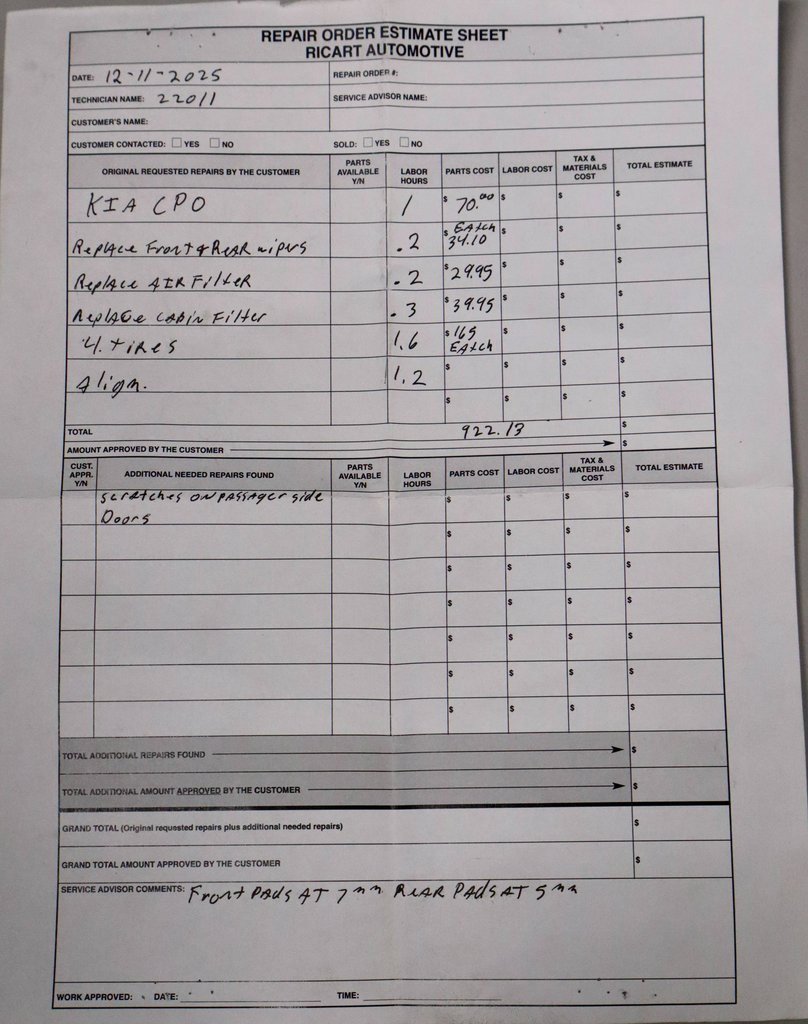 REPAIR ORDER ESTIMATE SHEET
RICART AUTOMOTIVE
DATE: 12-11-2025 REPAIR ORDER #:
TECHNICIAN NAME: 22011 SERVICE ADVISOR NAME:
CUSTOMER'S NAME:
CUSTOMER CONTACTED: YES NO SOLD: YES NO
ORIGINAL REQUESTED REPAIRS BY THE CUSTOMER PARTS AVAILABLE Y/N LABOR HOURS PARTS COST LABOR COST TAX & MATERIALS COST TOTAL ESTIMATE
KIA CPO 1 $ 70.00 $ $ $
Replace Front & Rear wipers .2 $ EAtch 34.10 $ $ $
Replace AIR Filter .2 $ 29.95 $ $ $
Replace CABIN Filter .3 $ 39.95 $ $ $
4. tires 1.6 $ 165 EAtch $ $ $
Align. 1.2 $ $ $ $
$ $ $ $
TOTAL 922.13 $
AMOUNT APPROVED BY THE CUSTOMER $
CUST. APPR. Y/N ADDITIONAL NEEDED REPAIRS FOUND PARTS AVAILABLE Y/N LABOR HOURS PARTS COST LABOR COST TAX & MATERIALS COST TOTAL ESTIMATE
scratches on passager side $ $ $ $
Doors
$ $ $ $
$ $ $ $
$ $ $ $
$ $ $ $
$ $ $ $
$ $ $ $
TOTAL ADDITIONAL REPAIRS FOUND $
TOTAL ADDITIONAL AMOUNT APPROVED BY THE CUSTOMER $
GRAND TOTAL (Original requested repairs plus additional needed repairs) $
GRAND TOTAL AMOUNT APPROVED BY THE CUSTOMER $
SERVICE ADVISOR COMMENTS: Front PADS AT 7mm REAR PADS AT 5mm
WORK APPROVED: DATE: TIME: